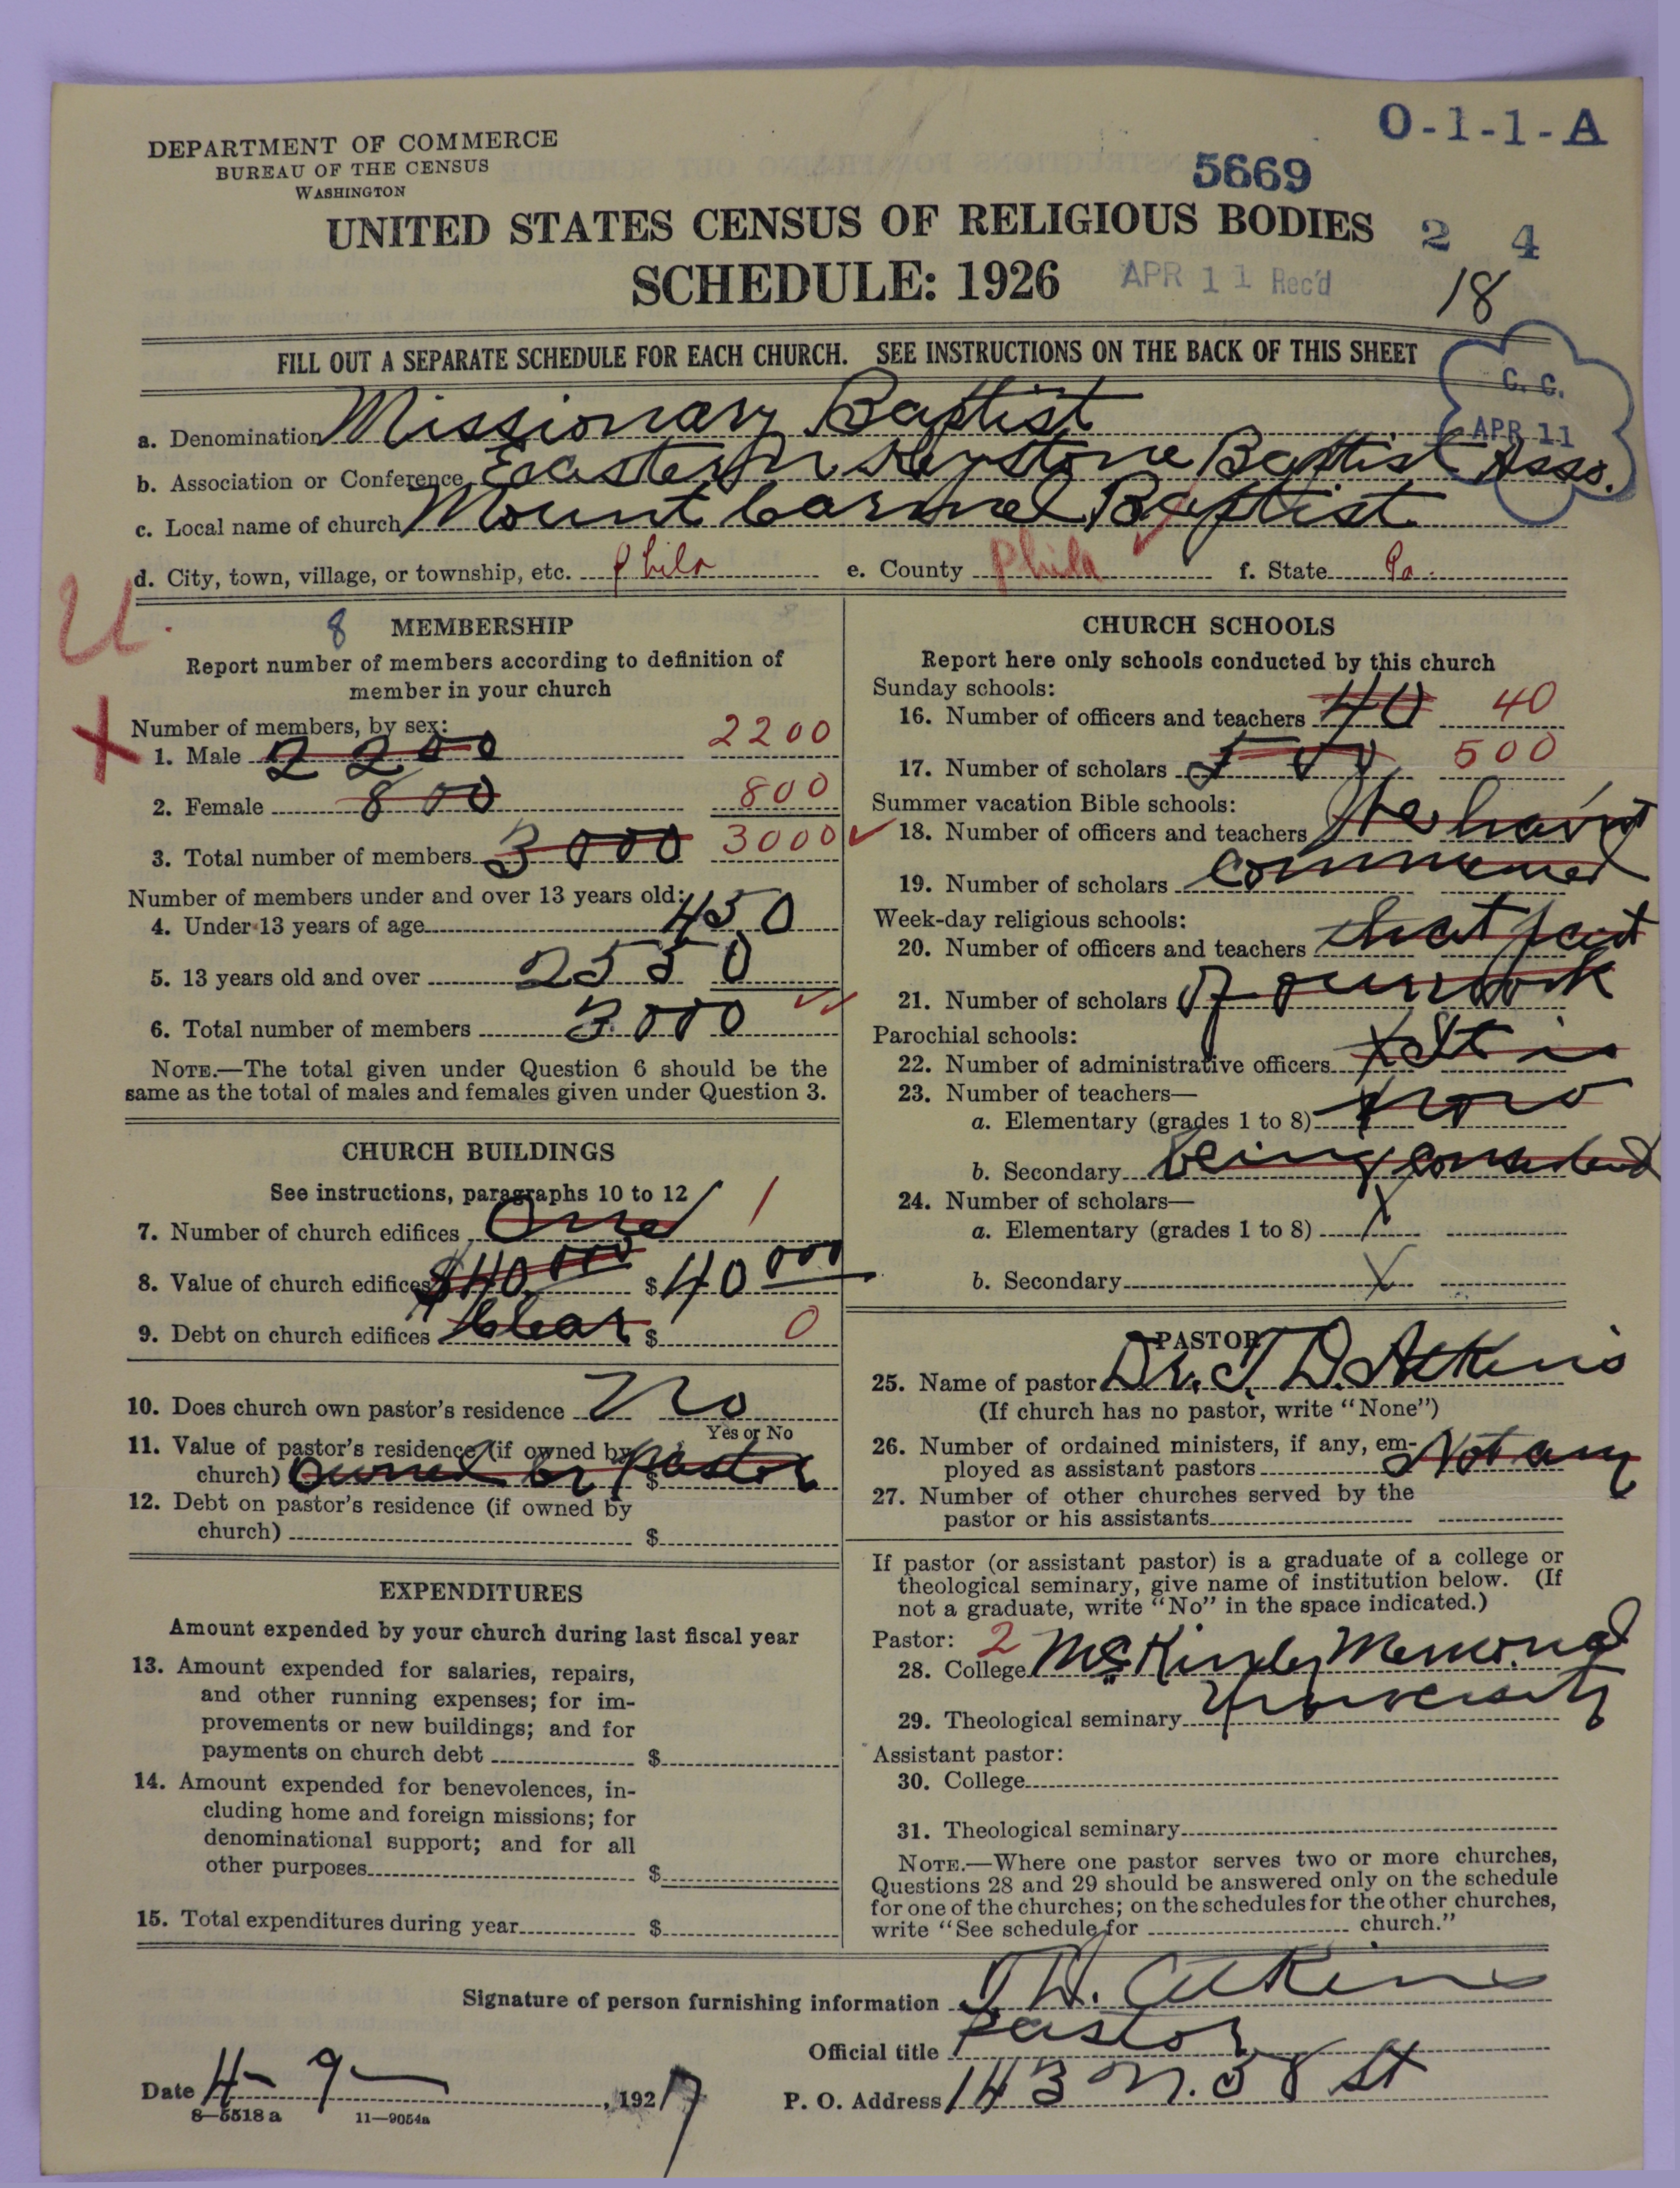 DEPARTMENT OF COMMERCE
BUREAU OF THE CENSUS
WASHINGTON
O-1-1-A
5669
UNITED STATES CENSUS OF RELIGIOUS BODIES
2 4
SCHEDULE: 1926
APR 11 Rec'd
18
FILL OUT A SEPARATE SCHEDULE FOR EACH CHURCH. SEE INSTRUCTIONS ON THE BACK OF THIS SHEET
C. C.
APR 11
a. Denomination Missionary Baptist
b. Association or Conference Eastern Keystone Baptist Asso.
c. Local name of church Mount Carmel Baptist
d. City, town, village, or township, etc. Phila e. County Phila f. State Pa.
U.
8 MEMBERSHIP
Report number of members according to definition of
member in your church
Number of members, by sex:
1. Male 2200 2200
2. Female 800 800
3. Total number of members 3000 3000
Number of members under and over 13 years old:
4. Under 13 years of age 450
5. 13 years old and over 2550
6. Total number of members 3000
NOTE.—The total given under Question 6 should be the
same as the total of males and females given under Question 3.
CHURCH BUILDINGS
See instructions, paragraphs 10 to 12
7. Number of church edifices One 1
8. Value of church edifices $40,000 $40000
9. Debt on church edifices Clear $ 0
10. Does church own pastor's residence No
Yes or No
11. Value of pastor's residence (if owned by
church) owned by Pastor $
12. Debt on pastor's residence (if owned by
church) $
EXPENDITURES
Amount expended by your church during last fiscal year
13. Amount expended for salaries, repairs,
and other running expenses; for im-
provements or new buildings; and for
payments on church debt $
14. Amount expended for benevolences, in-
cluding home and foreign missions; for
denominational support; and for all
other purposes $
15. Total expenditures during year $
CHURCH SCHOOLS
Report here only schools conducted by this church
Sunday schools:
16. Number of officers and teachers 40 40
17. Number of scholars 500 500
Summer vacation Bible schools:
18. Number of officers and teachers We hav'nt
19. Number of scholars commenced
Week-day religious schools:
20. Number of officers and teachers that part
21. Number of scholars of our work
Parochial schools:
22. Number of administrative officers X It is
23. Number of teachers—
a. Elementary (grades 1 to 8) X now
b. Secondary being considered
24. Number of scholars—
a. Elementary (grades 1 to 8) X
b. Secondary X
PASTOR
25. Name of pastor Dr. T. D. Atkins
(If church has no pastor, write "None")
26. Number of ordained ministers, if any, em-
ployed as assistant pastors Not any
27. Number of other churches served by the
pastor or his assistants
If pastor (or assistant pastor) is a graduate of a college or
theological seminary, give name of institution below. (If
not a graduate, write "No" in the space indicated.)
Pastor: 2
28. College McKinley Memorial
29. Theological seminary University
Assistant pastor:
30. College
31. Theological seminary
NOTE.—Where one pastor serves two or more churches,
Questions 28 and 29 should be answered only on the schedule
for one of the churches; on the schedules for the other churches,
write "See schedule for church."
Signature of person furnishing information T. D. Atkins
Official title Pastor
Date 4-9-, 1927 P. O. Address 143 N. 58 St
8—5518 a 11—9054a